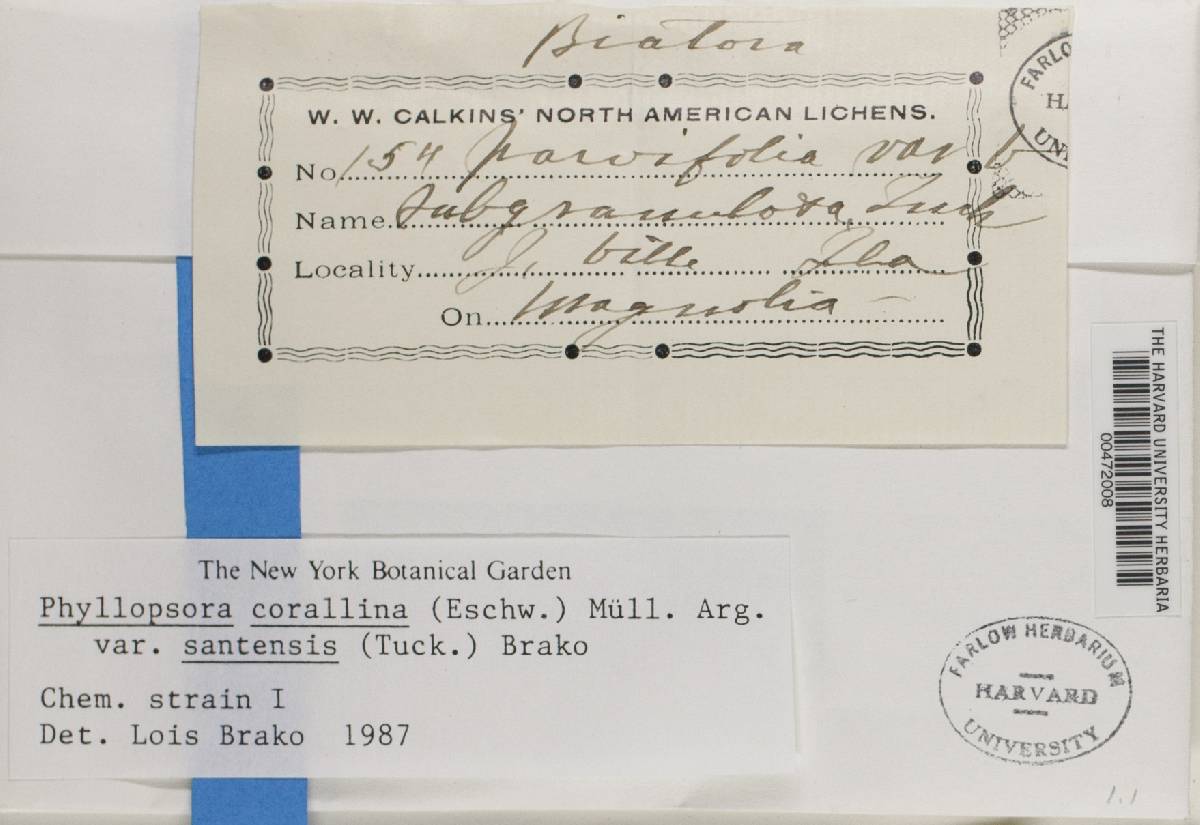 Biatora
W. W. CALKINS' NORTH AMERICAN LICHENS.
No. 154 parvifolia var b
Name. Subgranulosa, Tuck
Locality. J. ville Fla
On. Magnolia —
FARLO
HA
UNI
THE HARVARD UNIVERSITY HERBARIA
00472008
The New York Botanical Garden
Phyllopsora corallina (Eschw.) Müll. Arg.
var. santensis (Tuck.) Brako
Chem. strain I
Det. Lois Brako 1987
FARLOW HERBARIUM
HARVARD
UNIVERSITY
1.1